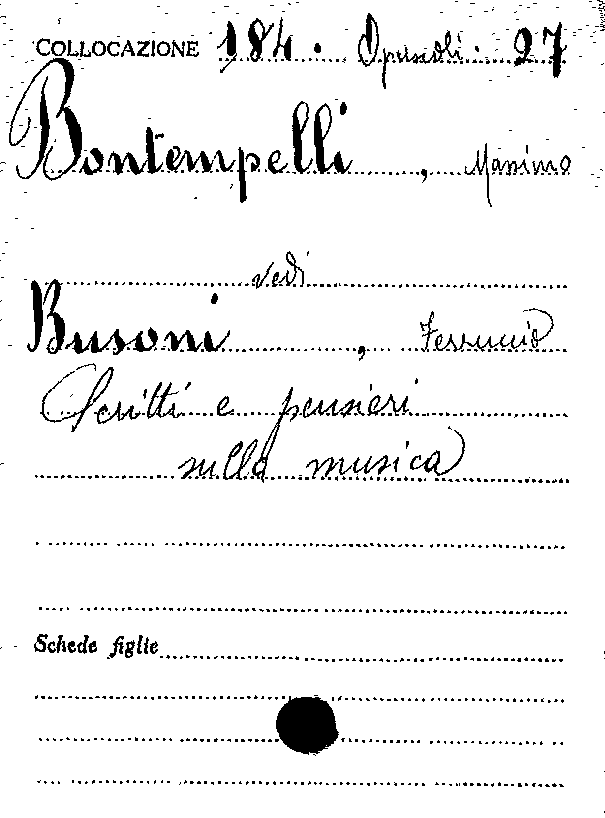 COLLOCAZIONE 184. Opuscoli. 27
Bontempelli, Massimo
vedi
Busoni, Ferruccio
Scritti e pensieri
sulla musica
Schede figlie